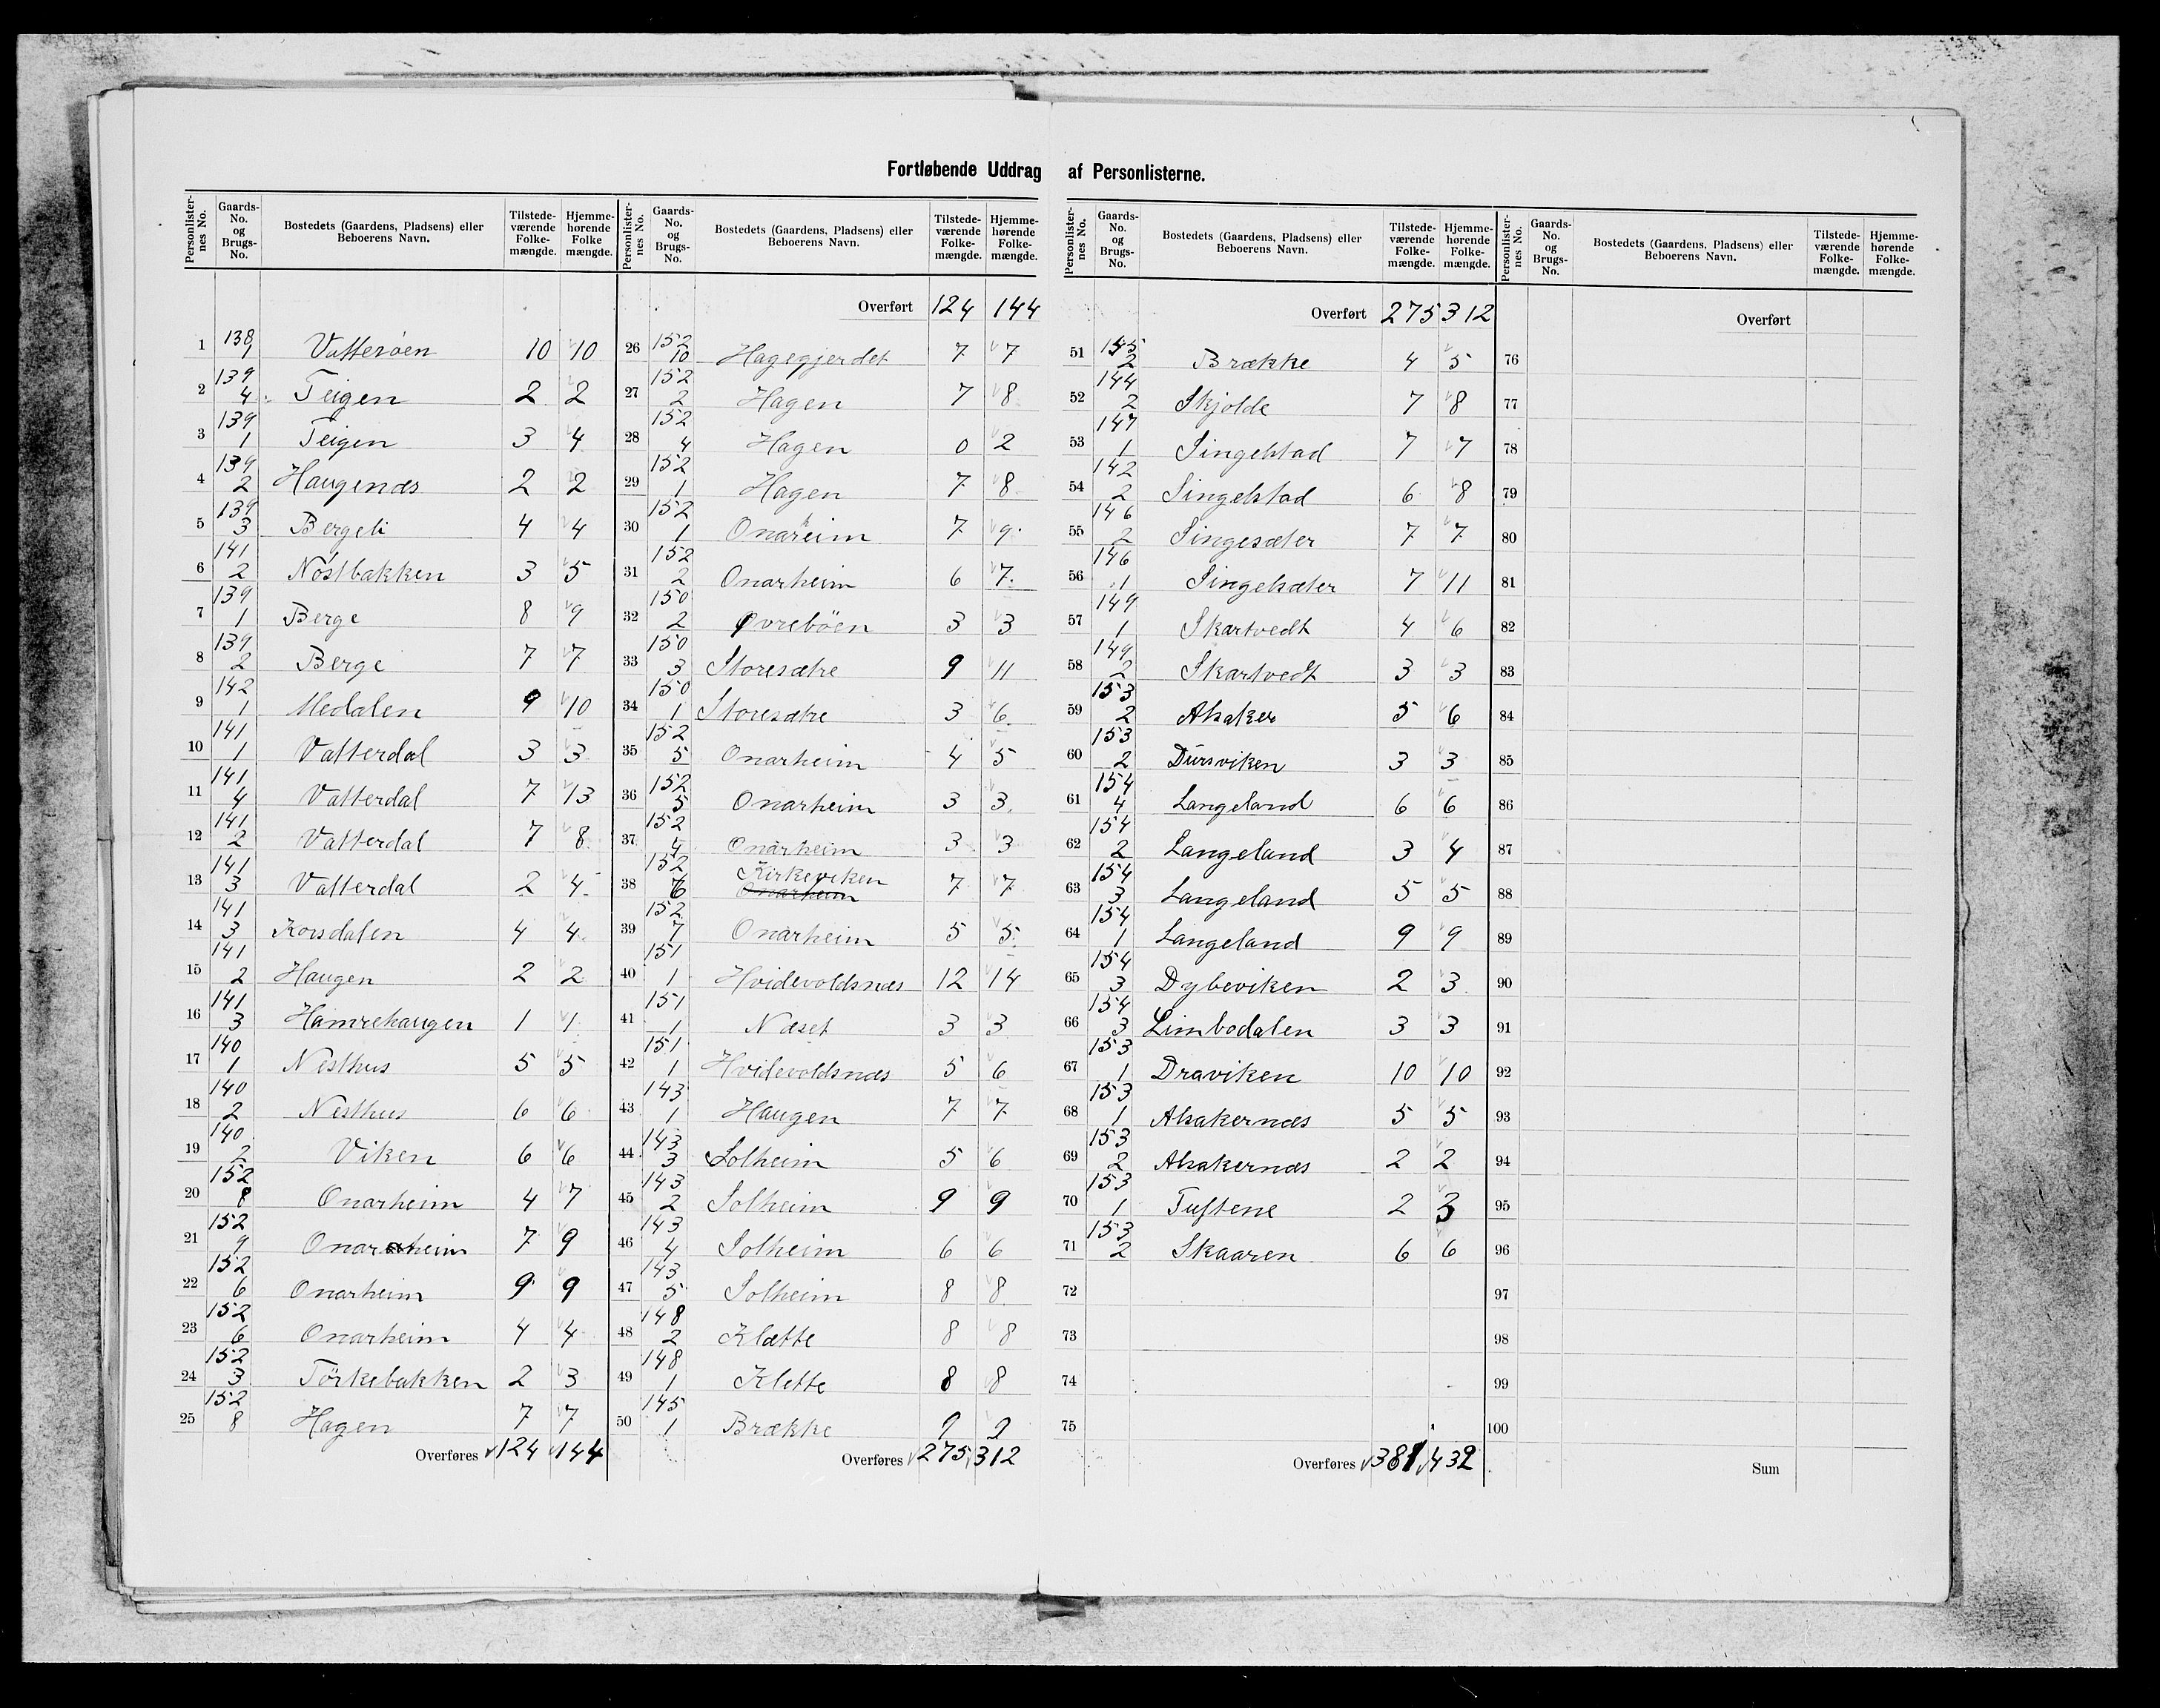 Fortløbende Uddrag af Personlisterne.
Personlister-nes No. | Gaards-No. og Brugs-No. | Bostedets (Gaardens, Pladsens) eller Beboerens Navn. | Tilstede-værende Folke-mængde. | Hjemme-hørende Folke mængde.
1 | 138 1 | Vatterøen | 10 | 10
2 | 139 4 | Teigen | 2 | 2
3 | 139 1 | Teigen | 3 | 4
4 | 139 2 | Haugenæs | 2 | 2
5 | 139 3 | Bergeli | 4 | 4
6 | 141 2 | Nøstbakken | 3 | 5
7 | 139 1 | Berge | 8 | 9
8 | 139 2 | Berge | 7 | 7
9 | 142 1 | Medalen | 9 | 10
10 | 141 1 | Vatterdal | 3 | 3
11 | 141 4 | Vatterdal | 7 | 13
12 | 141 2 | Vatterdal | 7 | 8
13 | 141 3 | Vatterdal | 2 | 4
14 | 141 3 | Korsdalen | 4 | 4
15 | 141 2 | Haugen | 2 | 2
16 | 141 3 | Hamrehaugen | 1 | 1
17 | 140 1 | Nesthus | 5 | 5
18 | 140 2 | Nesthus | 6 | 6
19 | 140 2 | Viken | 6 | 6
20 | 152 8 | Onarheim | 4 | 7
21 | 152 9 | Onarheim | 7 | 9
22 | 152 6 | Onarheim | 9 | 9
23 | 152 6 | Onarheim | 4 | 4
24 | 152 3 | Törkebakken | 2 | 3
25 | 152 8 | Hagen | 7 | 7
Overføres 124 144
Personlister-nes No. | Gaards-No. og Brugs-No. | Bostedets (Gaardens, Pladsens) eller Beboerens Navn. | Tilstede-værende Folke-mængde. | Hjemme-hørende Folke-mængde.
Overført 124 144
26 | 152 10 | Hagegjerdet | 7 | 7
27 | 152 2 | Hagen | 7 | 8
28 | 152 4 | Hagen | 0 | 2
29 | 152 1 | Hagen | 7 | 8
30 | 152 1 | Onarheim | 7 | 9
31 | 152 2 | Onarheim | 6 | 7
32 | 150 2 | Øvrebøen | 3 | 3
33 | 150 3 | Storesætre | 9 | 11
34 | 150 1 | Storesætre | 3 | 6
35 | 152 5 | Onarheim | 4 | 5
36 | 152 5 | Onarheim | 3 | 3
37 | 152 4 | Onarheim | 3 | 3
38 | 152 6 | Kirkeviken Onarheim | 7 | 7
39 | 152 7 | Onarheim | 5 | 5
40 | 151 1 | Hvidevoldsnæs | 12 | 14
41 | 151 1 | Næset | 3 | 3
42 | 151 1 | Hvidevoldsnæs | 5 | 6
43 | 143 1 | Haugen | 7 | 7
44 | 143 3 | Solheim | 5 | 6
45 | 143 2 | Solheim | 9 | 9
46 | 143 4 | Solheim | 6 | 6
47 | 143 5 | Solheim | 8 | 8
48 | 148 2 | Klætte | 8 | 8
49 | 148 1 | Klette | 8 | 8
50 | 145 1 | Brække | 9 | 9
Overføres 275 312
Personlister-nes No. | Gaards-No. og Brugs-No. | Bostedets (Gaardens, Pladsens) eller Beboerens Navn. | Tilstede-værende Folke-mængde. | Hjemme-hørende Folke-mængde.
Overført 275 312
51 | 145 2 | Brække | 4 | 5
52 | 144 2 | Skjolde | 7 | 8
53 | 147 1 | Singelstad | 7 | 7
54 | 142 2 | Singelstad | 6 | 8
55 | 146 2 | Singesæter | 7 | 7
56 | 146 1 | Singelsæter | 7 | 11
57 | 149 1 | Skartvedt | 4 | 6
58 | 149 2 | Skartvedt | 3 | 3
59 | 153 2 | Alsaker | 5 | 6
60 | 153 2 | Dursviken | 3 | 3
61 | 154 4 | Langeland | 6 | 6
62 | 154 2 | Langeland | 3 | 4
63 | 154 3 | Langeland | 5 | 5
64 | 154 1 | Langeland | 9 | 9
65 | 154 3 | Dybeviken | 2 | 3
66 | 154 3 | Limbodalen | 3 | 3
67 | 153 1 | Draviken | 10 | 10
68 | 153 1 | Alsakernæs | 5 | 5
69 | 153 2 | Alsakernæs | 2 | 2
70 | 153 1 | Tuftene | 2 | 3
71 | 153 2 | Skaaren | 6 | 6
72
73
74
75
Overføres 381 432
Personlister-nes No. | Gaards-No. og Brugs-No. | Bostedets (Gaardens, Pladsens) eller Beboerens Navn. | Tilstede-værende Folke-mængde. | Hjemme-hørende Folke-mængde.
Overført
76
77
78
79
80
81
82
83
84
85
86
87
88
89
90
91
92
93
94
95
96
97
98
99
100
Sum